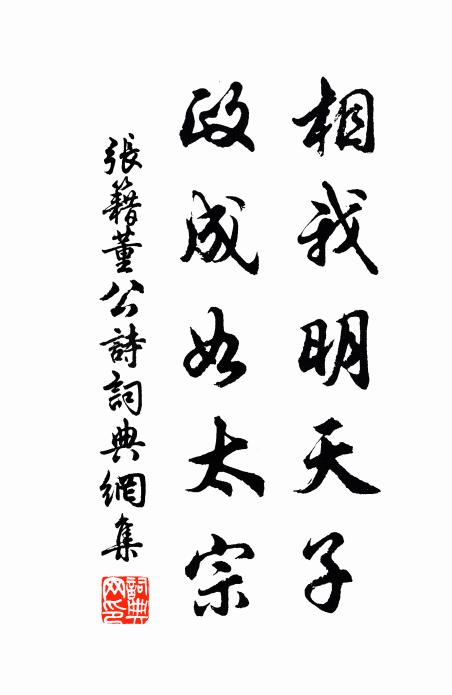 相我明天子
政成如太宗
張籍董公詩詞典網集
詞典网印